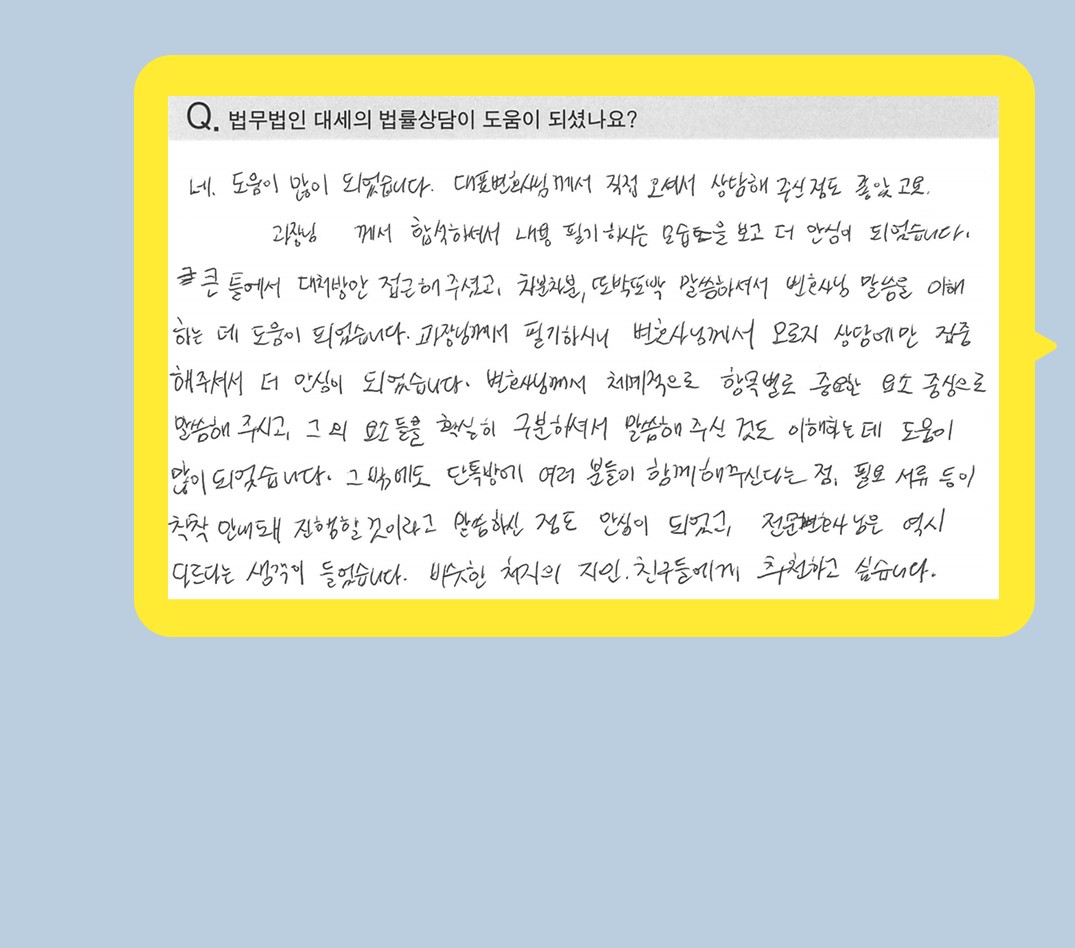 Q. 법무법인 대세의 법률상담이 도움이 되셨나요?
네. 도움이 많이 되었습니다. 대표변호사님께서 직접 오셔서 상담해 주신점도 좋았고요.
과장님 께서 합석하셔서 내용 필기하시는 모습을 보고 더 안심이 되었습니다.
큰 틀에서 대처방안 접근해주셨고, 차분차분, 또박또박 말씀하셔서 변호사님 말씀을 이해
하는 데 도움이 되었습니다. 과장님께서 필기하시니 변호사님께서 오로지 상담에만 집중
해주셔서 더 안심이 되었습니다. 변호사님께서 체계적으로 항목별로 중요한 요소 중심으로
말씀해 주시고, 그 외 요소들을 확실히 구분하셔서 말씀해 주신 것도 이해하는데 도움이
많이 되었습니다. 그 밖에도 단톡방에 여러 분들이 함께해주신다는 점, 필요 서류 등이
착착 안내돼 진행할 것이라고 말씀하신 점도 안심이 되었고, 전문변호사님은 역시
다르다는 생각이 들었습니다. 비슷한 처지의 지인, 친구들에게 추천하고 싶습니다.